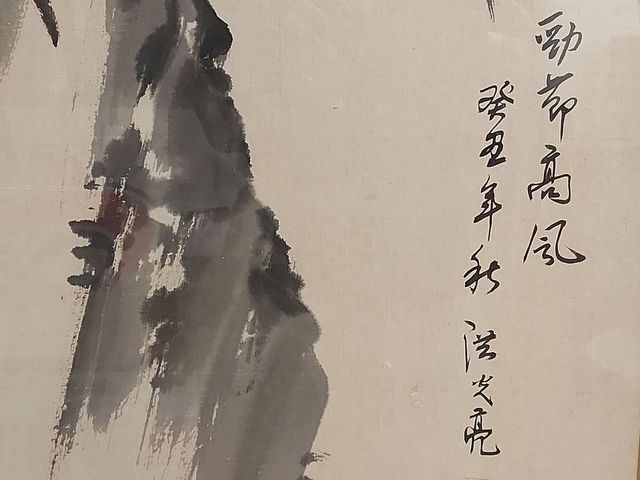 勁節高風
癸丑年秋 洪光亮